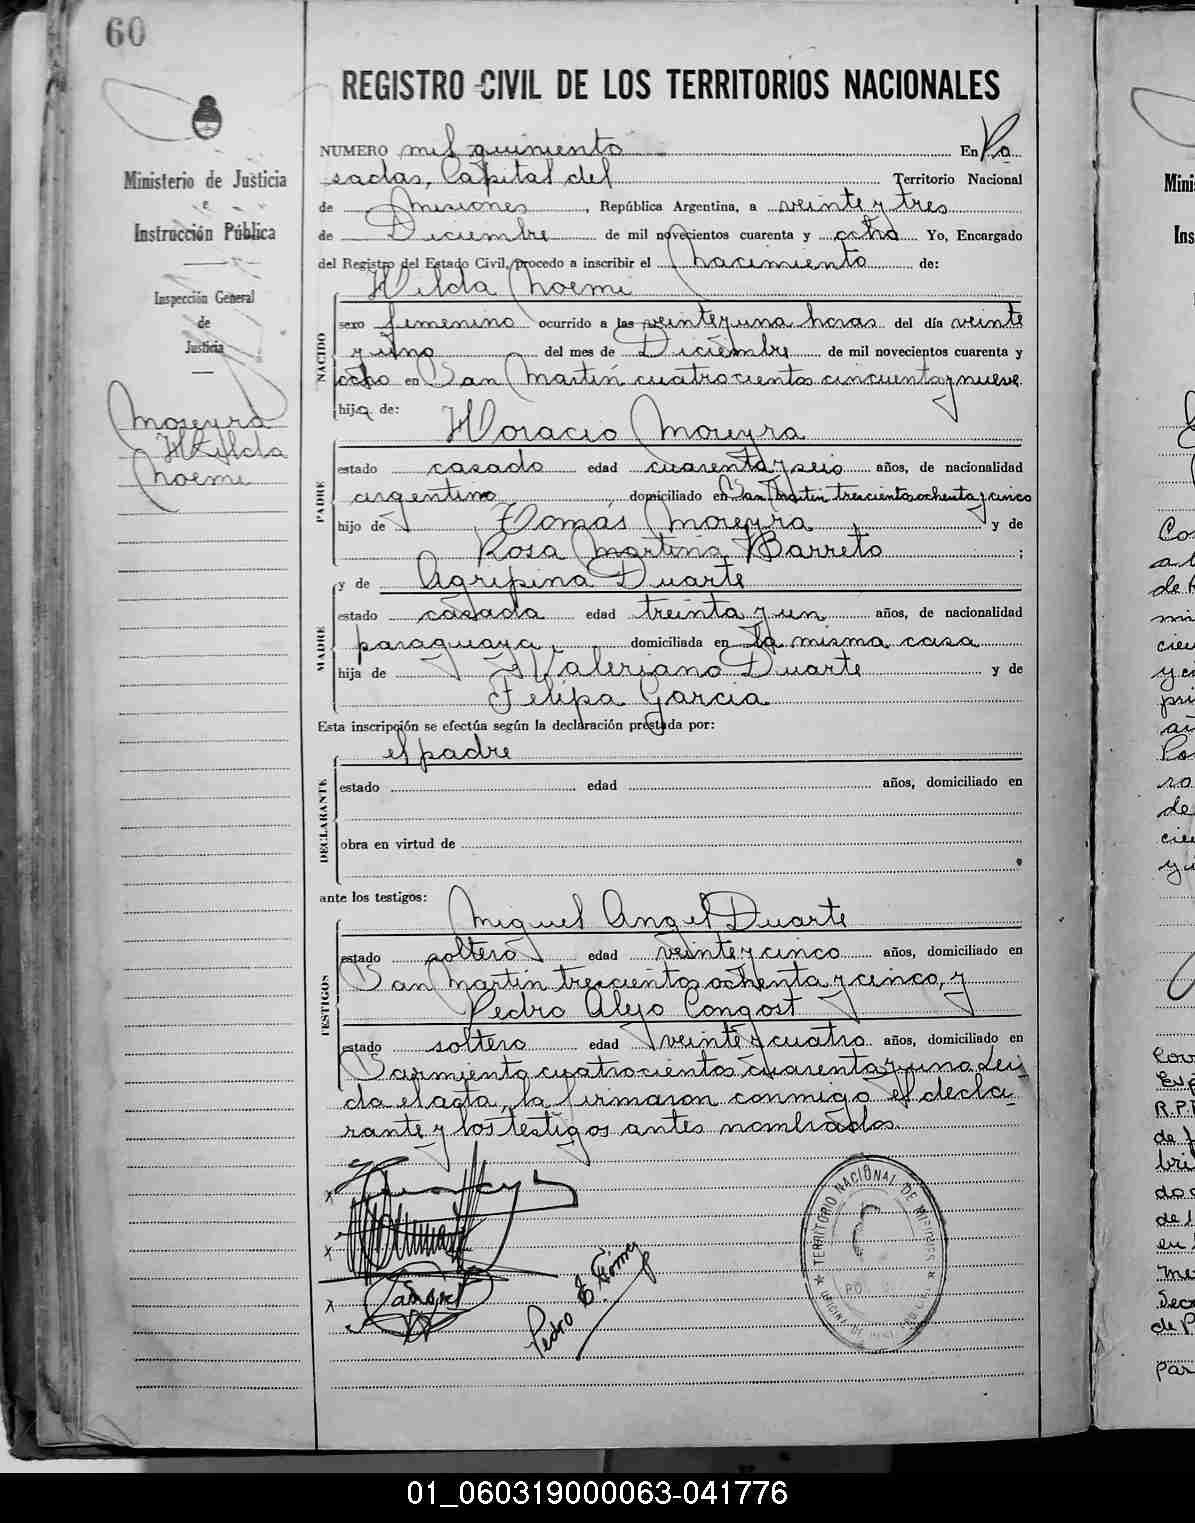 60
REGISTRO CIVIL DE LOS TERRITORIOS NACIONALES
Ministerio de Justicia
e
Instrucción Pública
Inspección General
de
Justicia
Moreyra
Hilda
Noemi
NUMERO mil quiniento En Po
sadas, Capital del Territorio Nacional
de Misiones, República Argentina, a veinte y tres
de Diciembre de mil novecientos cuarenta y ocho Yo, Encargado
del Registro del Estado Civil, procedo a inscribir el Nacimiento de:
Hilda Noemi
NACIDO
sexo femenino ocurrido a las veinte y una horas del día veinte
y uno del mes de Diciembre de mil novecientos cuarenta y
ocho en San Martin cuatrocientos cincuenta y nueve
hija de:
Horacio Moreyra
PADRE
estado casado edad cuarenta y seis años, de nacionalidad
argentino, domiciliado en San Martin trescientos ochenta y cinco
hijo de Tomás Moreyra y de
Rosa Martina Barreto ;
y de Agripina Duarte
MADRE
estado casada edad treinta y un años, de nacionalidad
paraguaya, domiciliada en la misma casa
hija de Valeriano Duarte y de
Felipa Garcia
Esta inscripción se efectúa según la declaración prestada por:
el padre
DECLARANTE
estado edad años, domiciliado en
obra en virtud de
ante los testigos:
Miguel Angel Duarte
TESTIGOS
estado soltero edad veinte y cinco años, domiciliado en
San Martin trescientos ochenta y cinco, y
Pedro Alejo Congost
estado soltero edad veinte y cuatro años, domiciliado en
Sarmiento cuatrocientos cuarenta y uno. Lei
da el acta, la firmaron conmigo el decla-
rante y los testigos antes nombrados.
Pedro E. Gómez
TERRITORIO NACIONAL DE MISIONES
01_060319000063-041776